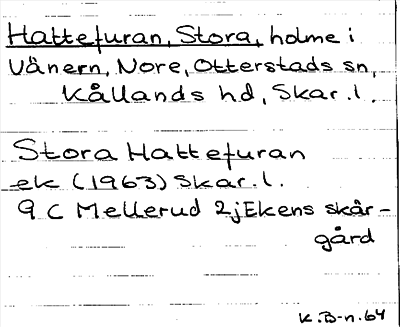 Hattefuran, Stora, holme i
Vänern, Nore, Otterstads sn,
Kållands hd, Skar.l.
Stora Hattefuran
ek (1963) Skar.l.
9 C Mellerud 2j Ekens skär-
gård
K.B-n.64